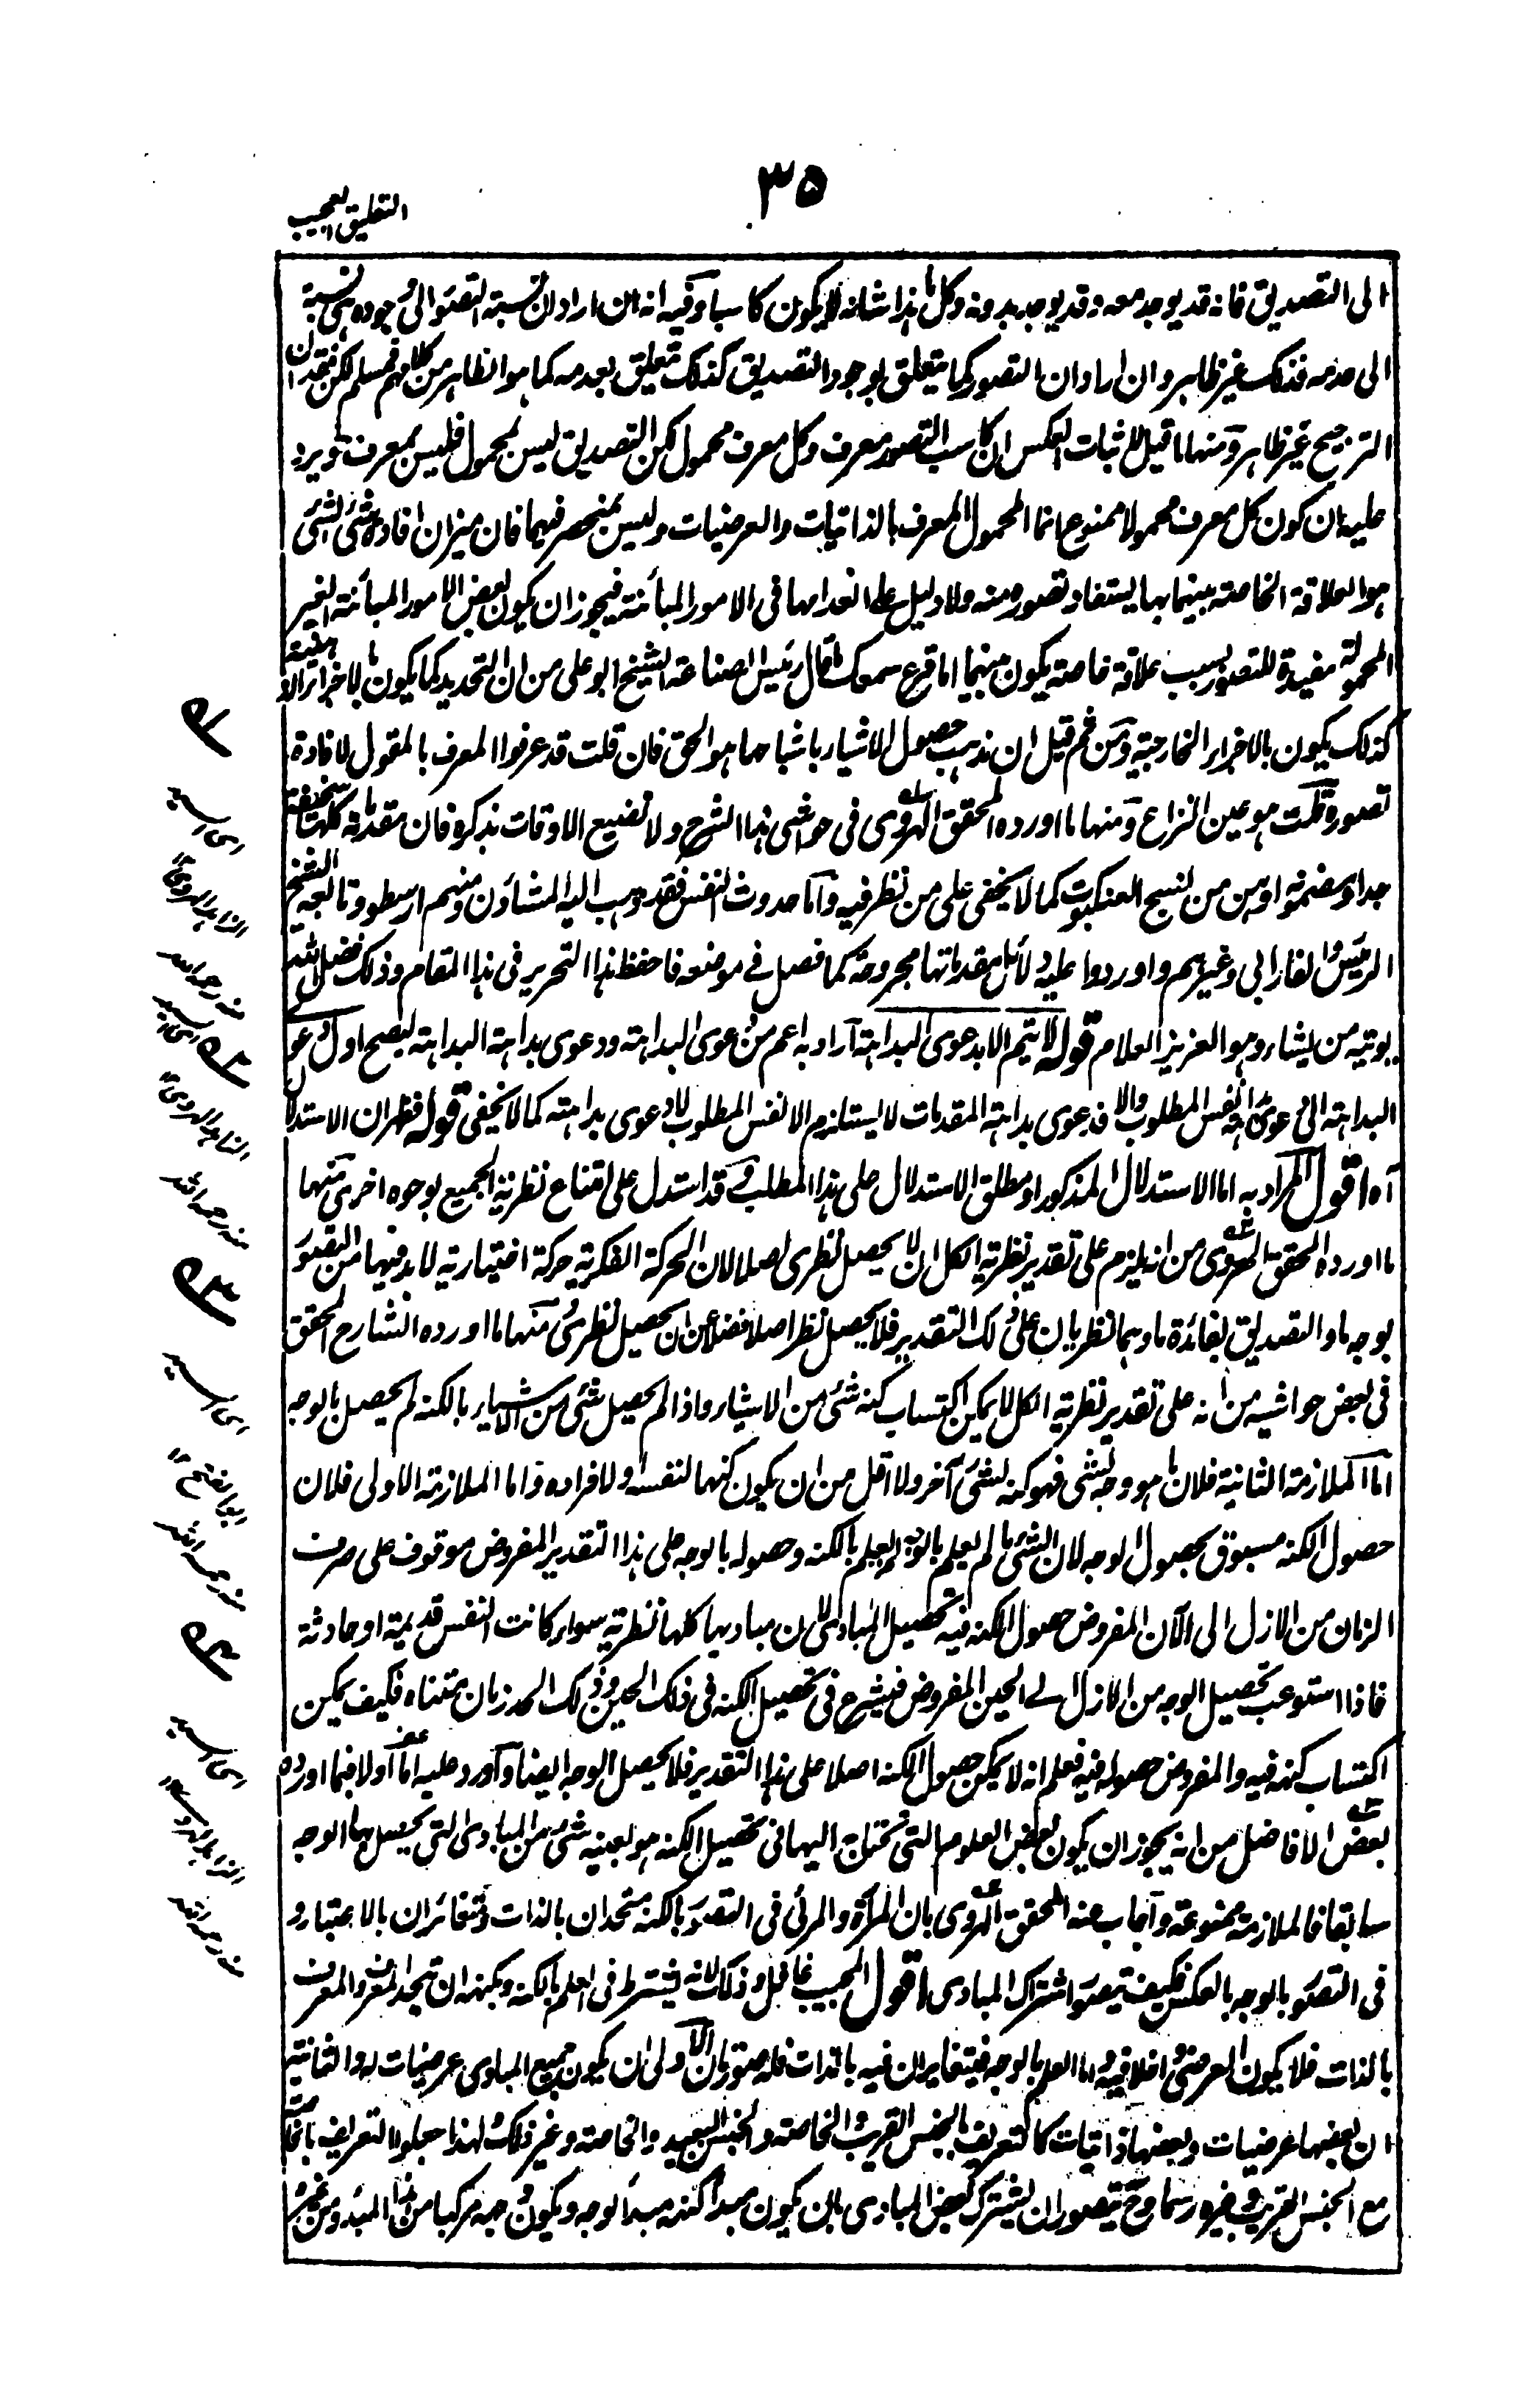 ٣٥
التعليق العجيب
الى التصديق فانه قد يوجد معه وقد يوجد بدونه وكل ما هذا شانه لا يكون كاسبا وفيه انه ان اراد ان نسبة التصور الى وجوده هى نسبة
الى عدمه فذلك غير ظاهر وان اراد ان التصور كما يتعلق بوجود التصديق كذلك يتعلق بعدمه كما هو الظاهر من كلامهم فمسلم لكن فقدان
الترجيح غير ظاهر ومنها ما قيل لاثبات العكس ان كاسب التصور معرف وكل معرف محمول لكن التصديق ليس بمحمول فليس بمعرف ويرد
عليه ان كون كل معرف محمولا ممنوع انما المحمول المعرف بالذاتيات والعرضيات وليس بمنحصر فيهما فان ميزان افادة شئ لشئ
هو العلاقة الخاصة بينهما بها يستفاد تصوره منه ولا دليل على انعدامها فى الامور المبائنة فيجوز ان يكون بعض الامور المبائنة الغير
المحمولة مفيدة للتصور بسبب علاقة خاصة يكون بينهما اما قرع سمعك ما قال رئيس الصناعة الشيخ ابو على من ان التحديد كما يكون بالاجزاء الذهنية
كذلك يكون بالاجزاء الخارجية ومن ثم قيل ان مذهب حصول الاشياء باشباحها هو الحق فان قلت قد عرفوا المعرف بالمقول لافادة
تصوره قلت هو عين النزاع ومنها ما اورده المحقق الهروى فى حواشى هذا الشرح ولا نضيع الاوقات بذكره فان مقدماته كلها سخيفة
جدا ومضمونه اوهن من نسج العنكبوت كما لا يخفى على من نظر فيه واما حدوث النفس فقد ذهب اليه المشاؤن ومنهم ارسطو وتابعه الشيخ
الرئيس والفارابى وغيرهم واوردوا عليه دلائل مقدماتها مجروحة كما فصل فى موضعه فاحفظ هذا التحرير فى هذا المقام وذلك فضل الله
يوتيه من يشاء وهو العزيز العلام قوله لا تتم الا بدعوى البداهة آراد به اعم من دعوى البداهة ودعوى بداهة البداهة ليصح اول دعوى
البداهة الى دعوى بداهة نفس المطلوب والا فدعوى بداهة المقدمات لا يستلزم الا نفس المطلوب لا دعوى بداهته كما لا يخفى قوله فظهر ان الاستدلال
آه اقول المراد به اما الاستدلال المذكور او مطلق الاستدلال على هذا المطلب وقد استدل على امتناع نظرية الجميع بوجوه اخرى منها
ما اورده المحقق الهروى من انه يلزم على تقدير نظرية الكل ان لا يحصل نظرى اصلا لان الحركة الفكرية حركة اختيارية لا بد فيها من التصور
بوجه ما والتصديق بفائدة ما وهما نظريان على ذلك التقدير فلا يحصل نظر اصلا فضلا عن ان يحصل نظرى ومنها ما اورده الشارح المحقق
فى بعض حواشيه من انه على تقدير نظرية الكل لا يمكن اكتساب كنه شئ من الاشياء واذا لم يحصل شئ من الاشياء بالكنه لم يحصل بالوجه
اما الملازمة الثانية فلان ما هو وجه لشئ فهو كنه لشئ آخر ولا اقل من ان يكون كنها لنفسه او لافراده واما الملازمة الاولى فلان
حصول الكنه مسبوق بحصول الوجه لان الشئ ما لم يعلم بالوجه لم يعلم بالكنه وحصوله بالوجه على هذا التقدير المفروض موقوف على صرف
الزمان من الازل الى الآن المفروض حصول الكنه فيه لتحصيل المبادى لان مباديها كلها نظرية سواء كانت النفس قديمة او حادثة
فاذا استوعب تحصيل الوجه من الازل الى الحين المفروض فيشرع فى تحصيل الكنه فى ذلك الحين وذلك الحد زمان متناه فكيف يمكن
اكتساب كنهه فيه والمفروض حصوله فيه فعلم انه لا يمكن حصول الكنه اصلا على هذا التقدير فلا يحصل الوجه ايضا وآورد عليه اما اولا فبما اورده
بعض الافاضل من انه يجوز ان يكون بعض العلوم التى تحتاج اليها فى تحصيل الكنه هو بعينه شئ من المبادى التى يحصل بها الوجه
سابقا فالملازمة ممنوعة وآجاب عنه المحقق الهروى بان المرآة والمرئى فى التصور بالكنه متحدان بالذات ومتغائران بالاعتبار و
فى التصور بالوجه بالعكس فكيف يتصور اشتراك المبادى اقول المجيب غافل وذلك لانه يشترط فى العلم بالكنه وبكنهه ان يتحد المعرف والمعرف
بالذات فلا يكون العرضى داخلا فيه واما العلم بالوجه فيتغايران فيه بالذات فله صورتان الاولى ان يكون جميع المبادى عرضيات له والثانية
ان بعضها عرضيات وبعضها ذاتيات كالتعريف بالجنس القريب والخاصة والجنس البعيد والخاصة وغير ذلك ولهذا جعلوا التعريف بالخاصة
مع الجنس القريب وغيره رسما وح يتصور ان يشترك بعض المبادى بان يكون مبدأ كنهه مبدأ لوجه ويكون وجهه مركبا من هذا المبدء ومن غيره
١ه
اى السيد
الزاهد الهروى ١٢
منه رحمه الله
٢ه
اى السيد
الزاهد الهروى ١٢
منه رحمه الله
٣ه
اى السيد
ابو الفتح ١٢
منه رحمه الله
٤ه
اى السيد
الزاهد الهروى ١٢
منه رحمه الله